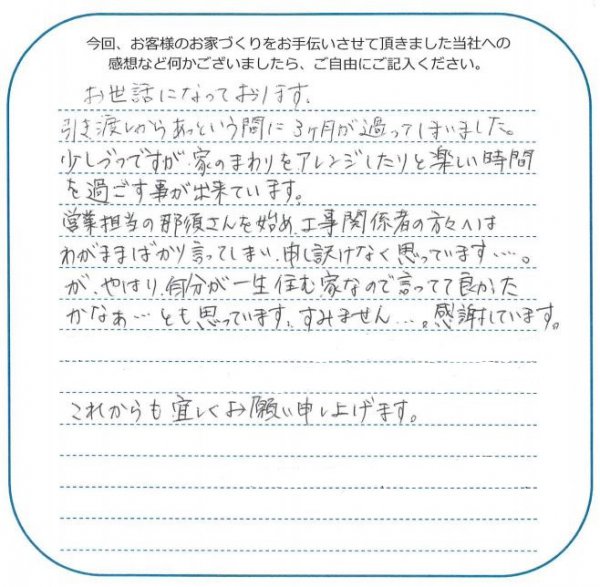 今回、お客様のお家づくりをお手伝いさせて頂きました当社への
感想など何かございましたら、ご自由にご記入ください。
お世話になっております。
引き渡しからあっという間に3ヶ月が過ってしまいました。
少しづつですが、家のまわりをアレンジしたりと楽しい時間
を過ごす事が出来ています。
営業担当の那須さんを始め、工事関係者の方々へは
わがままばかり言ってしまい、申し訳けなく思っています…。
が、やはり、自分が一生住む家なので言ってて良かった
かなぁ…とも思っています、すみません…。感謝しています。
これからも宜しくお願い申し上げます。